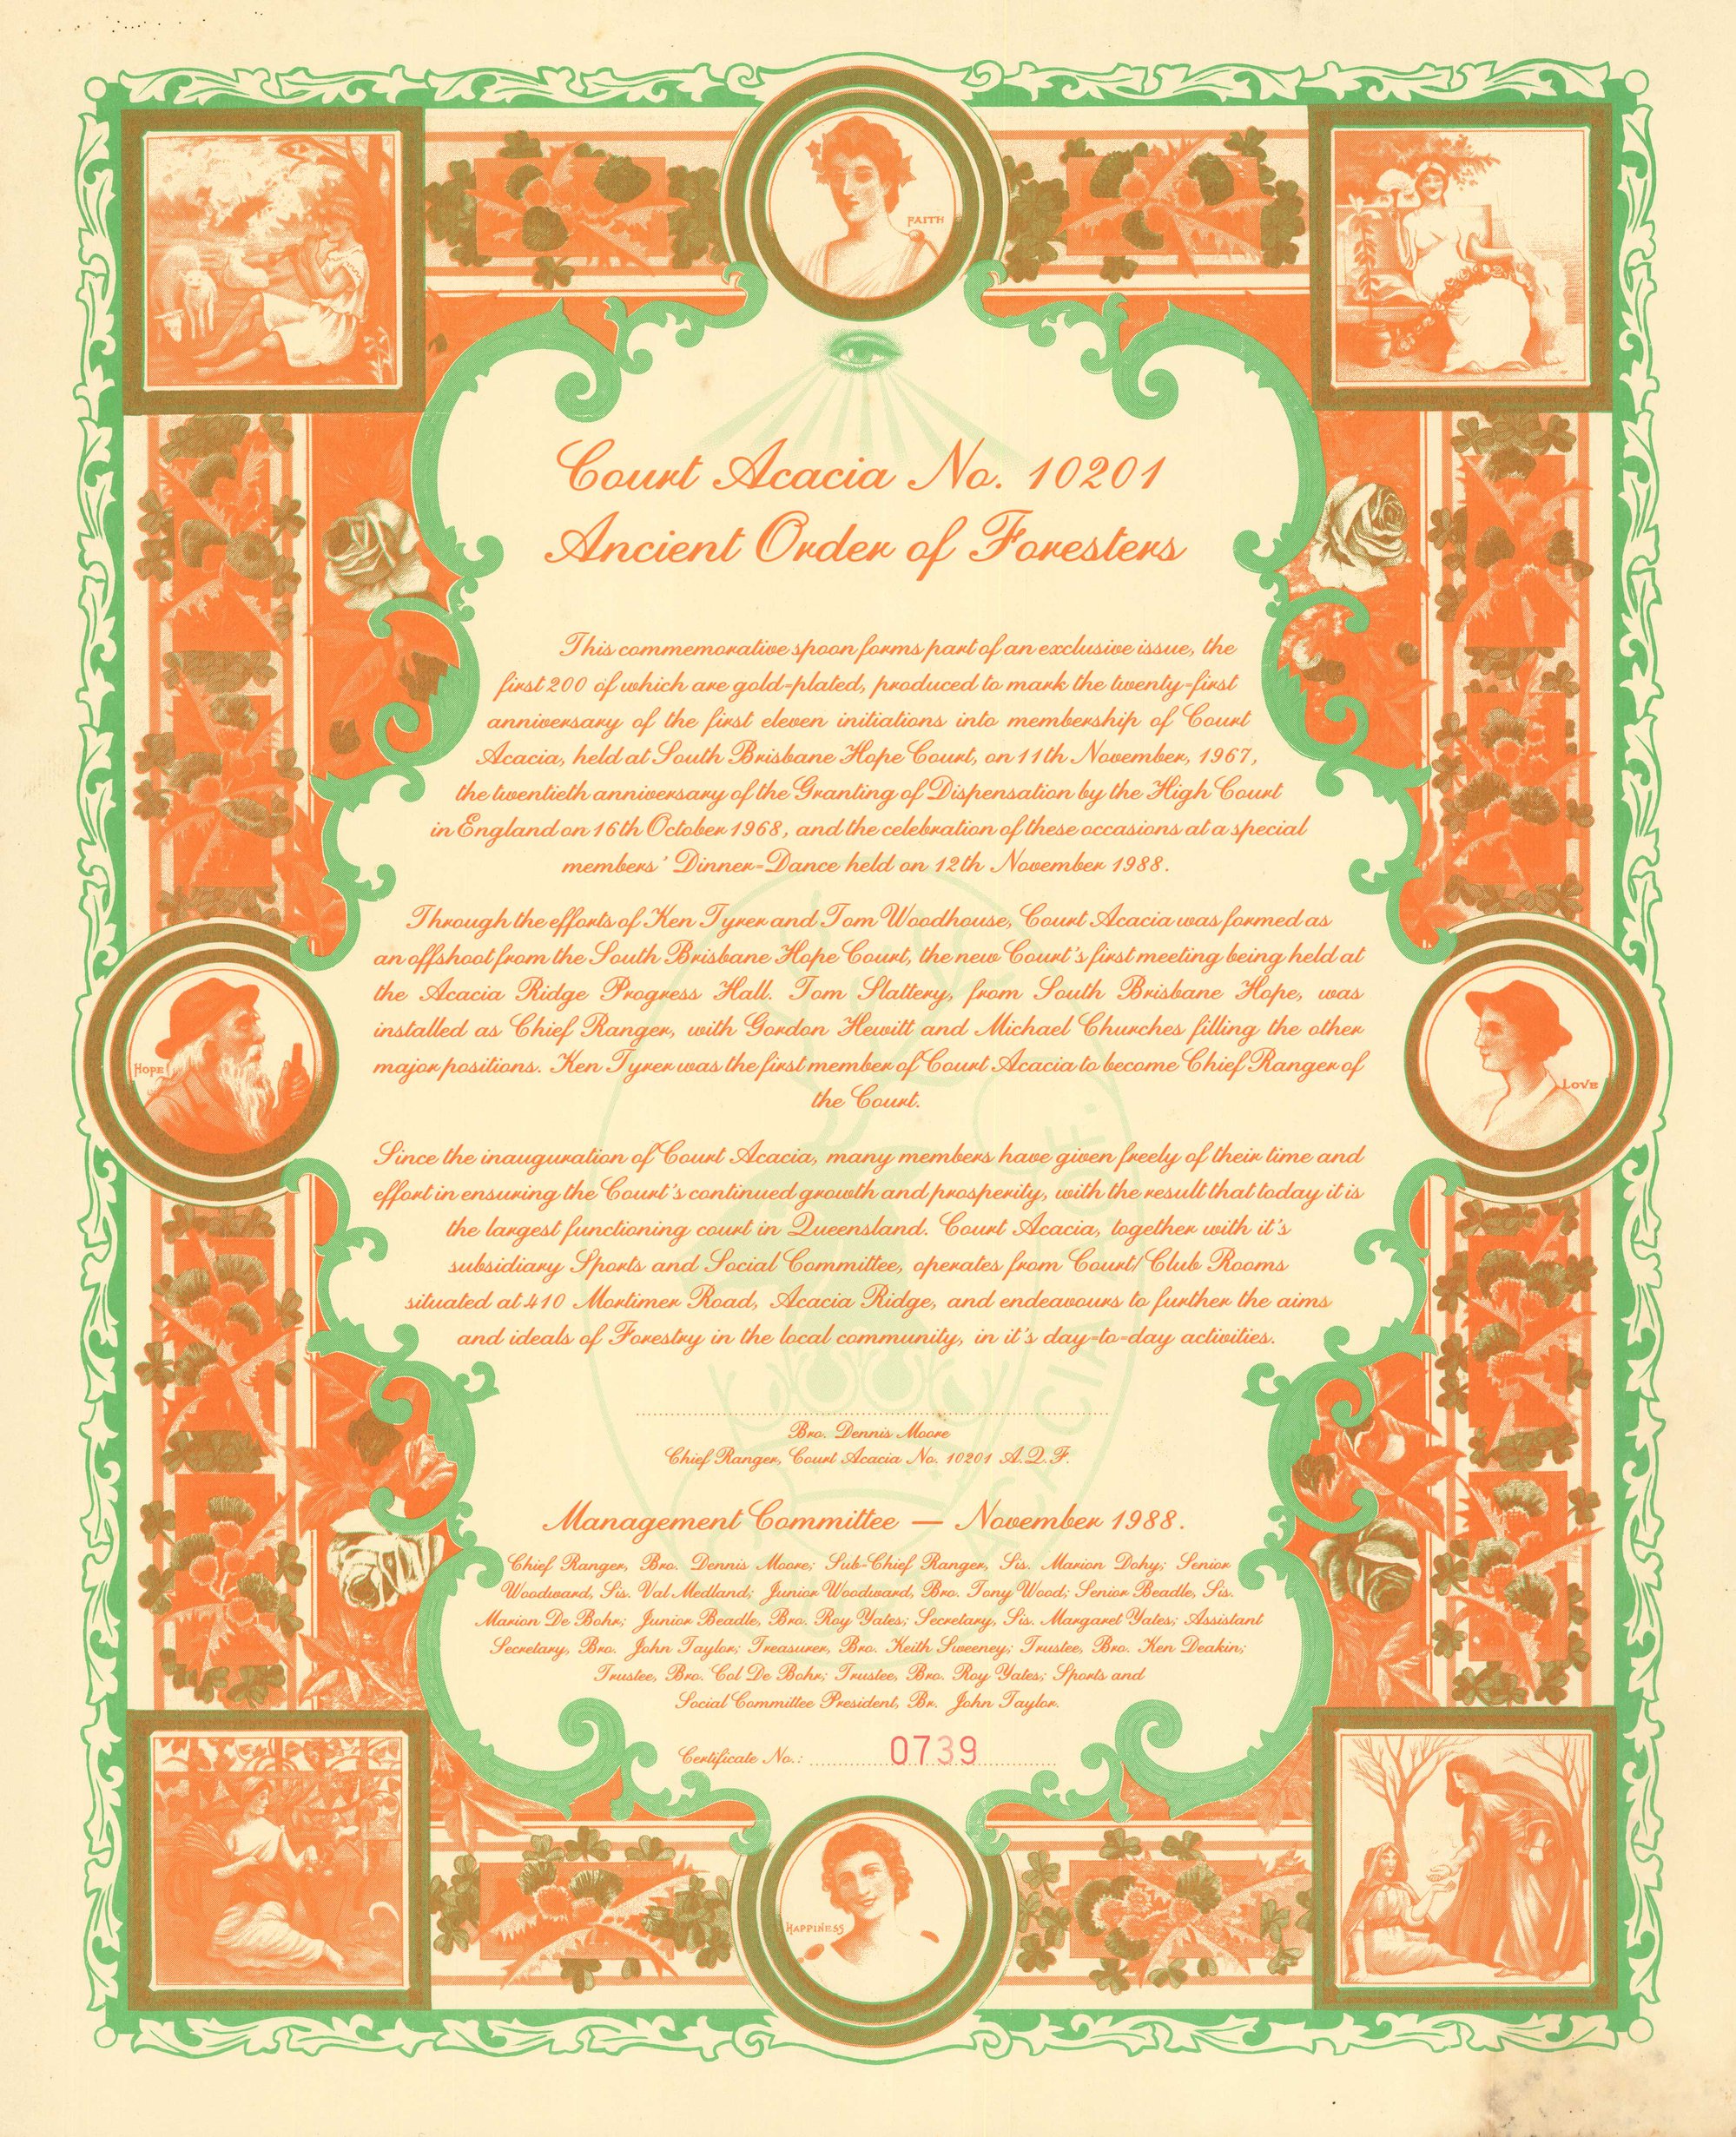 FAITH
Court Acacia No. 10201
Ancient Order of Foresters
This commemorative spoon forms part of an exclusive issue, the
first 200 of which are gold-plated, produced to mark the twenty-first
anniversary of the first eleven initiations into membership of Court
Acacia, held at South Brisbane Hope Court, on 11th November, 1967,
the twentieth anniversary of the Granting of Dispensation by the High Court
in England on 16th October 1968, and the celebration of these occasions at a special
members' Dinner-Dance held on 12th November 1988.
Through the efforts of Ken Tyrer and Tom Woodhouse, Court Acacia was formed as
an offshoot from the South Brisbane Hope Court, the new Court's first meeting being held at
the Acacia Ridge Progress Hall. Tom Slattery, from South Brisbane Hope, was
installed as Chief Ranger, with Gordon Hewitt and Michael Churches filling the other
major positions. Ken Tyrer was the first member of Court Acacia to become Chief Ranger of
the Court.
HOPE
LOVE
Since the inauguration of Court Acacia, many members have given freely of their time and
effort in ensuring the Court's continued growth and prosperity, with the result that today it is
the largest functioning court in Queensland. Court Acacia, together with it's
subsidiary Sports and Social Committee, operates from Court/Club Rooms
situated at 410 Mortimer Road, Acacia Ridge, and endeavours to further the aims
and ideals of Forestry in the local community, in it's day-to-day activities.
Bro. Dennis Moore
Chief Ranger, Court Acacia No. 10201 A.O.F.
Management Committee — November 1988.
Chief Ranger, Bro. Dennis Moore; Sub-Chief Ranger, Sis. Marion Dohy; Senior
Woodward, Sis. Val Medland; Junior Woodward, Bro. Tony Wood; Senior Beadle, Sis.
Marion De Bohr; Junior Beadle, Bro. Roy Yates; Secretary, Sis. Margaret Yates; Assistant
Secretary, Bro. John Taylor; Treasurer, Bro. Keith Sweeney; Trustee, Bro. Ken Deakin;
Trustee, Bro. Col De Bohr; Trustee, Bro. Roy Yates; Sports and
Social Committee President, Br. John Taylor.
Certificate No.: 0739
HAPPINESS